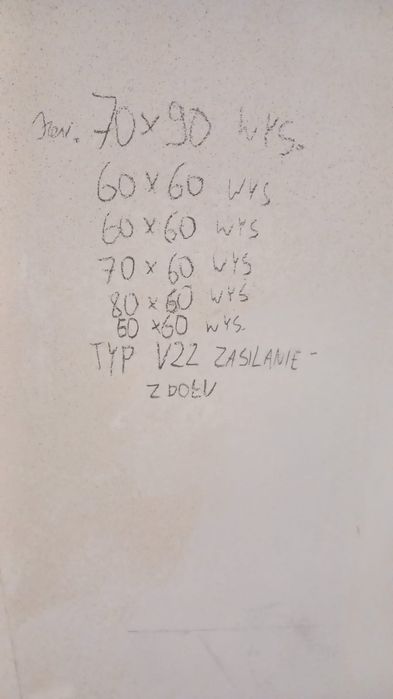 70 x 90 WYS.
60 x 60 WYS
60 x 60 WYS
70 x 60 WYS
80 x 60 WYS
60 x 60 WYS.
TYP V22 ZASILANIE -
Z DOŁU